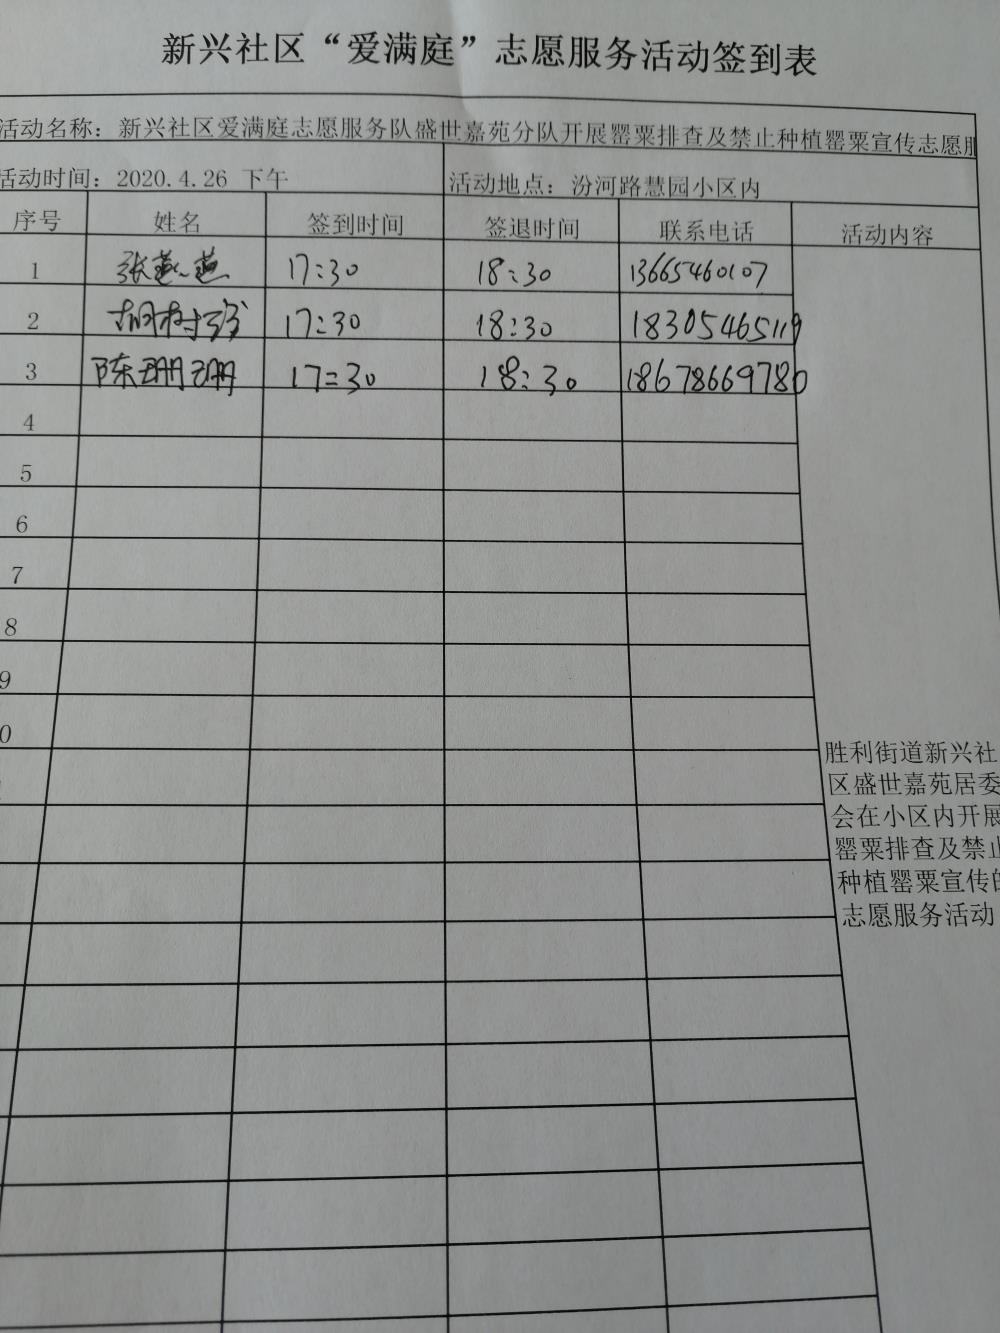 新兴社区“爱满庭”志愿服务活动签到表
活动名称：新兴社区爱满庭志愿服务队盛世嘉苑分队开展罂粟排查及禁止种植罂粟宣传志愿服
活动时间：2020.4.26 下午 活动地点：汾河路慧园小区内
序号 姓名 签到时间 签退时间 联系电话 活动内容
1 张燕燕 17:30 18:30 13665460107
2 胡树 17:30 18:30 18305465119
3 陈珊珊 17:30 18:30 18678669786
4
5
6
7
8
9
0
胜利街道新兴社
区盛世嘉苑居委
会在小区内开展
罂粟排查及禁止
种植罂粟宣传的
志愿服务活动